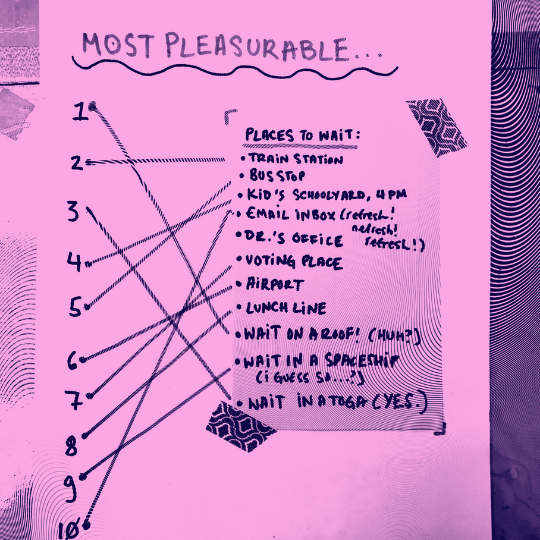 MOST PLEASURABLE...
1
2
3
4
5
6
7
8
9
10
PLACES TO WAIT:
• TRAIN STATION
• BUS STOP
• KID'S SCHOOLYARD, 4PM
• EMAIL INBOX (refresh!
refresh!
refresh!)
• DR.'S OFFICE
• VOTING PLACE
• AIRPORT
• LUNCH LINE
• WAIT ON A ROOF! (HUH?)
• WAIT IN A SPACESHIP
(I GUESS SO...?)
• WAIT IN A TOGA (YES.)